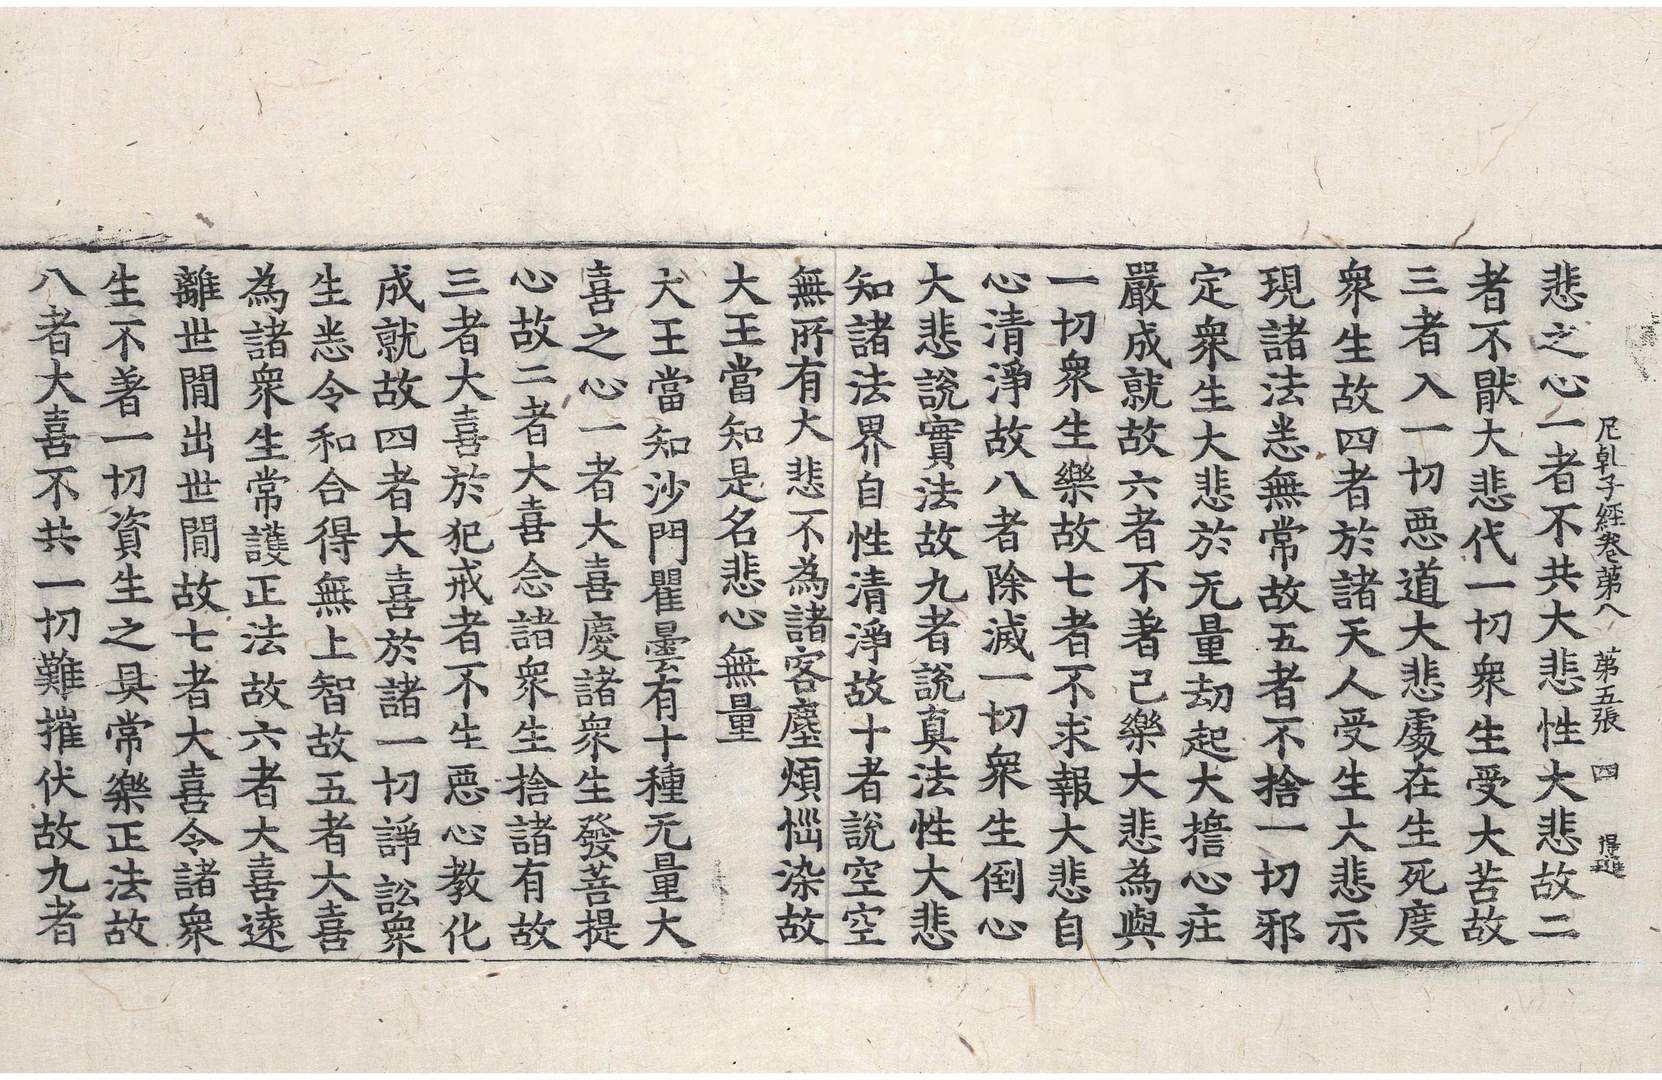 尼乹子經卷第八 第五張 四
悲之心一者不共大悲性大悲故二
者不猒大悲代一切衆生受大苦故
三者入一切惡道大悲處在生死度
衆生故四者於諸天人受生大悲示
現諸法悉無常故五者不捨一切邪
定衆生大悲於无量劫起大擔心庄
嚴成就故六者不著己樂大悲為與
一切衆生樂故七者不求報大悲自
心清淨故八者除滅一切衆生倒心
大悲說實法故九者說真法性大悲
知諸法界自性清淨故十者說空空
無所有大悲不為諸客塵煩惱染故
大王當知是名悲心無量
大王當知沙門瞿曇有十種无量大
喜之心一者大喜慶諸衆生發菩提
心故二者大喜念諸衆生捨諸有故
三者大喜於犯戒者不生惡心教化
成就故四者大喜於諸一切諍訟衆
生悉令和合得無上智故五者大喜
為諸衆生常護正法故六者大喜遠
離世閒出世閒故七者大喜令諸衆
生不著一切資生之具常樂正法故
八者大喜不共一切難摧伏故九者